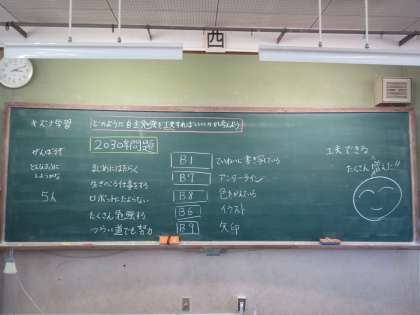 西
キズナ学習
どのように自主勉強を工夫すればいいのか考えよう
2030年問題
がんばらず
まじめにはたらく
生きのこる仕事をする
ロボットにたよらない
たくさん勉強する
つらい道でも努力
5人
B1 ていねいに書き方ている
B7 アンダーライン
B8 色をつかっている
B6 イラスト
B9 矢印
工夫できる
たくさん